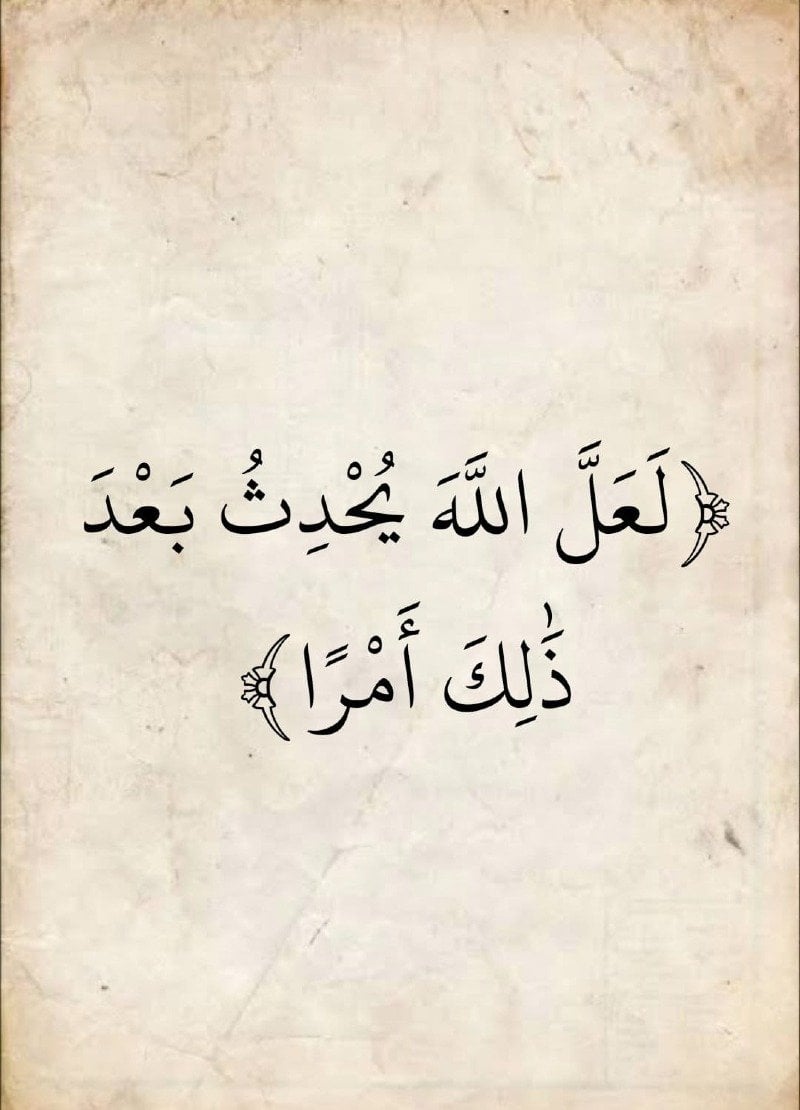 ﴿لَعَلَّ اللَّهَ يُحْدِثُ بَعْدَ
ذَٰلِكَ أَمْرًا﴾